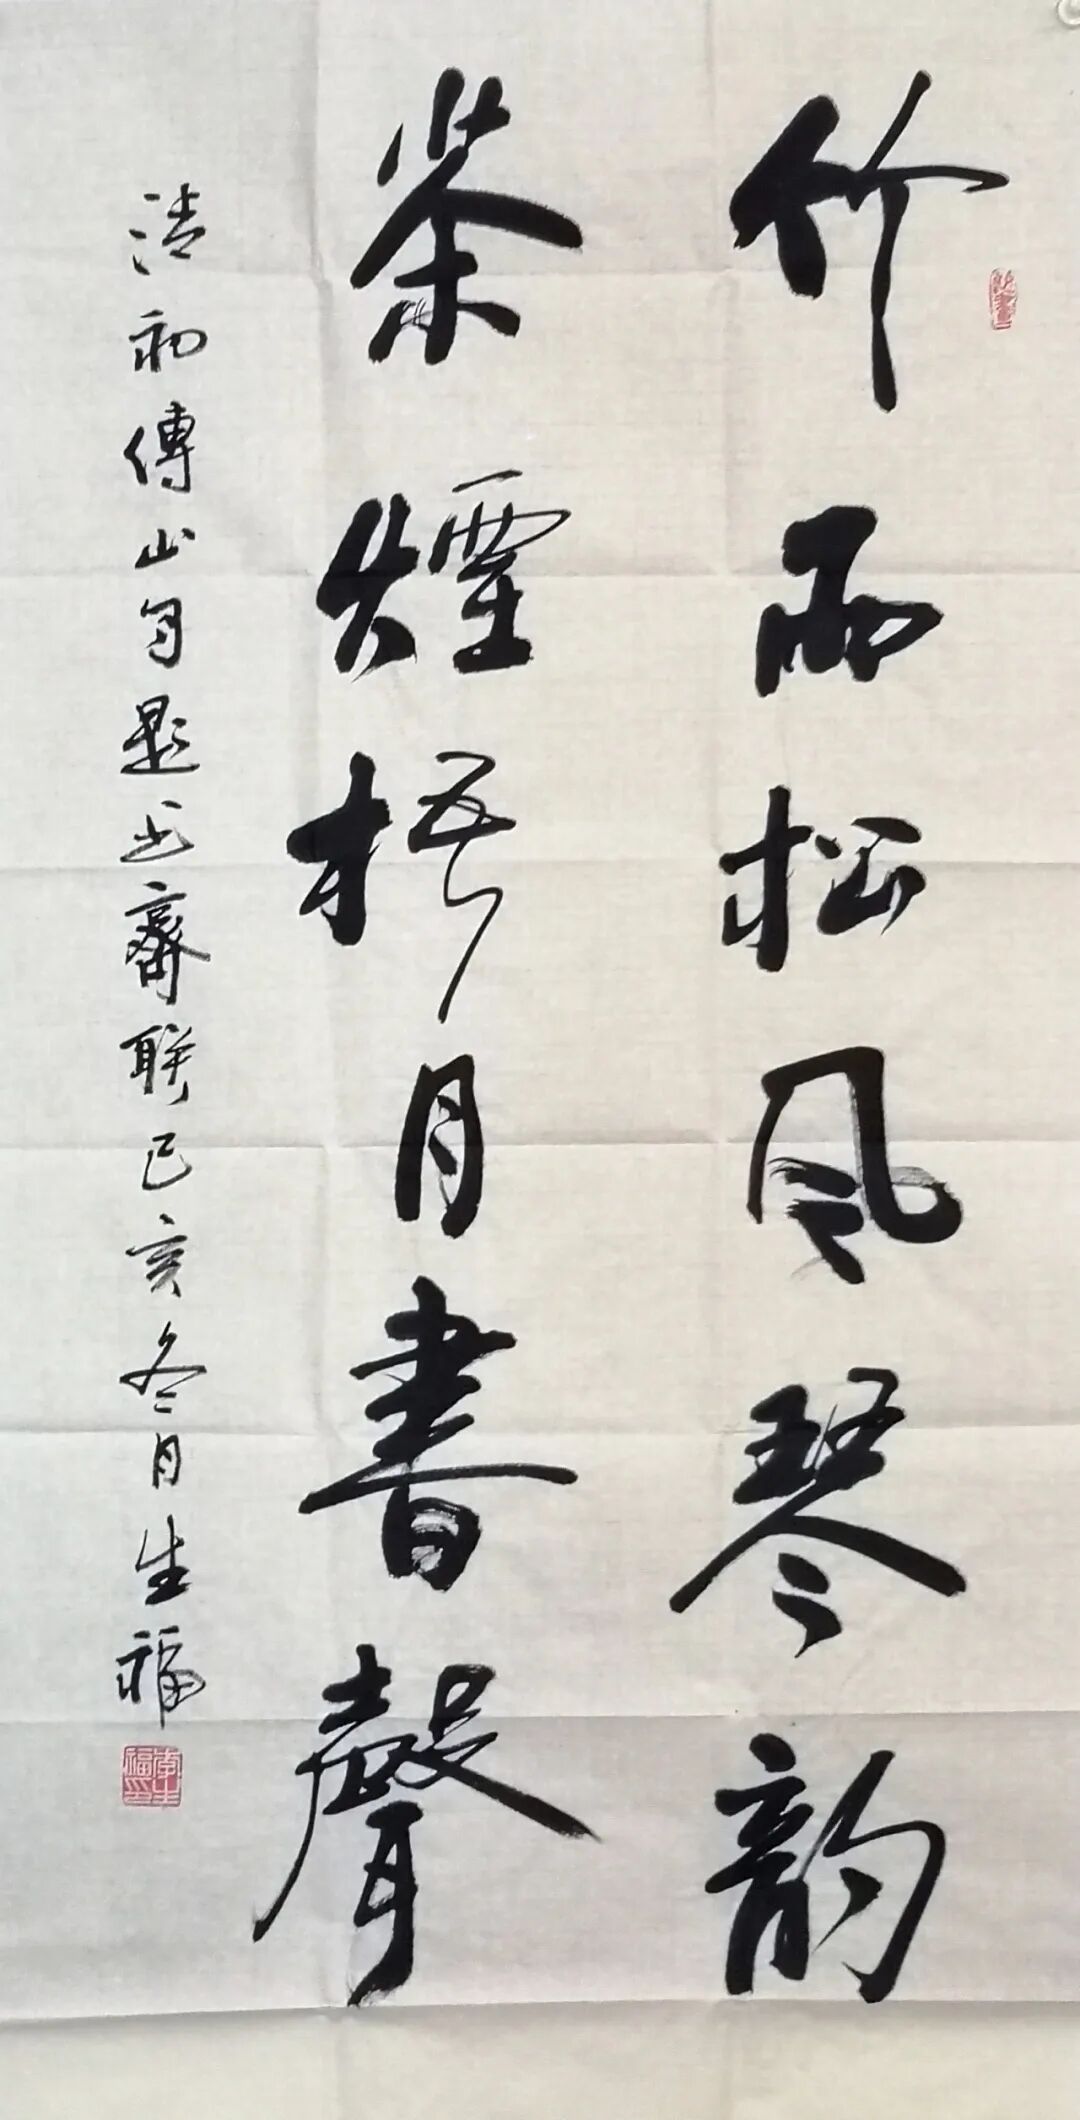 竹雨松風琴韵
茶煙梧月書聲
清初傅山句題書齋聯己亥冬月生福
李生福印